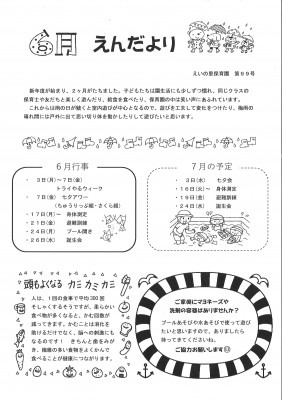 6月 えんだより
えいの里保育園 第99号
新年度が始まり、2ヶ月がたちました。子どもたちは園生活にも少しずつ慣れ、同じクラスの
保育士やお友だちと楽しく遊んだり、給食を食べたり、保育園の中は笑い声にあふれています。
これからは雨の日が続くと室内遊びが中心となるので、遊びを工夫して変化をつけたり、梅雨の
晴れ間には戸外に出て思い切り体を動かしたりして遊びたいと思います。
6月行事
・ 3日(月)～7日(金)
トライやるウィーク
・ 7日(金) 七夕アワー
(ちゅうりっぷ組・さくら組)
・17日(月)～ 身体測定
・21日(金) 避難訓練
・24日(月) プール開き
・26日(水) 誕生会
7月の予定
・ 3日(水) 七夕会
・16日(火)～ 身体測定
・19日(金) 避難訓練
・24日(水) 誕生会
頭もよくなる カミカミカミ
人は、1回の食事で平均300回
そしゃくするそうですが、柔らかい
食べ物が多くなると、かむ回数が
減ってきます。かむことは消化を
助けるだけでなく、脳への刺激にも
なるのです! きちんと歯をみが
き、繊維の多い食物をよくかんで
食べることが健康につながります。
ご家庭にマヨネーズや
洗剤の容器はありませんか?
プールあそびや水あそびで使って遊び
たいと思いますので、ありましたら
持ってきてくださいね。
ご協力お願いします